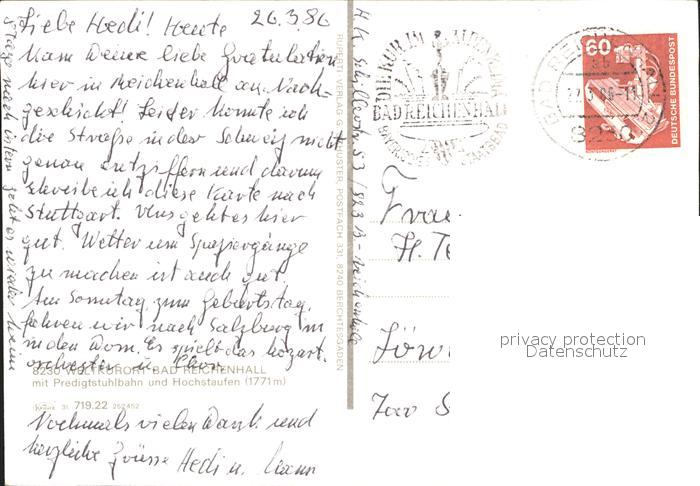 26.3.86
Liebe Hedi! Heute
kam Deine liebe Gratulation
hier in Reichenhall an. Nach-
geschickt! Leider konnte ich
die Straße in der Schweiz nicht
genau entziffern und darum
schreibe ich diese Karte nach
Stuttgart. Uns geht es hier
gut. Wetter um Spaziergänge
zu machen ist auch gut.
Am Sonntag zum Geburtstag,
fahren wir nach Salzburg in
in den Dom. Es spielt das Mozart-
orchester u. Chor.
8230 WELTKURORT BAD REICHENHALL
mit Predigtstuhlbahn und Hochstaufen (1771m)
31 719.22 252452
Nochmals vielen Dank und
herzliche Grüsse Hedi u.
nach Ostern geht es wieder heim
RUPERTI-VERLAG G. SCHUSTER, POSTFACH 331, 8240 BERCHTESGADEN
53 / 823 B-Reichenhall
DIE KUR IM
BAD REICHENHALL
STAATSBAD
BAD REICHENHALL 2
8230
60
DEUTSCHE BUNDESPOST
Frau
H. Te
privacy protection
Datenschutz